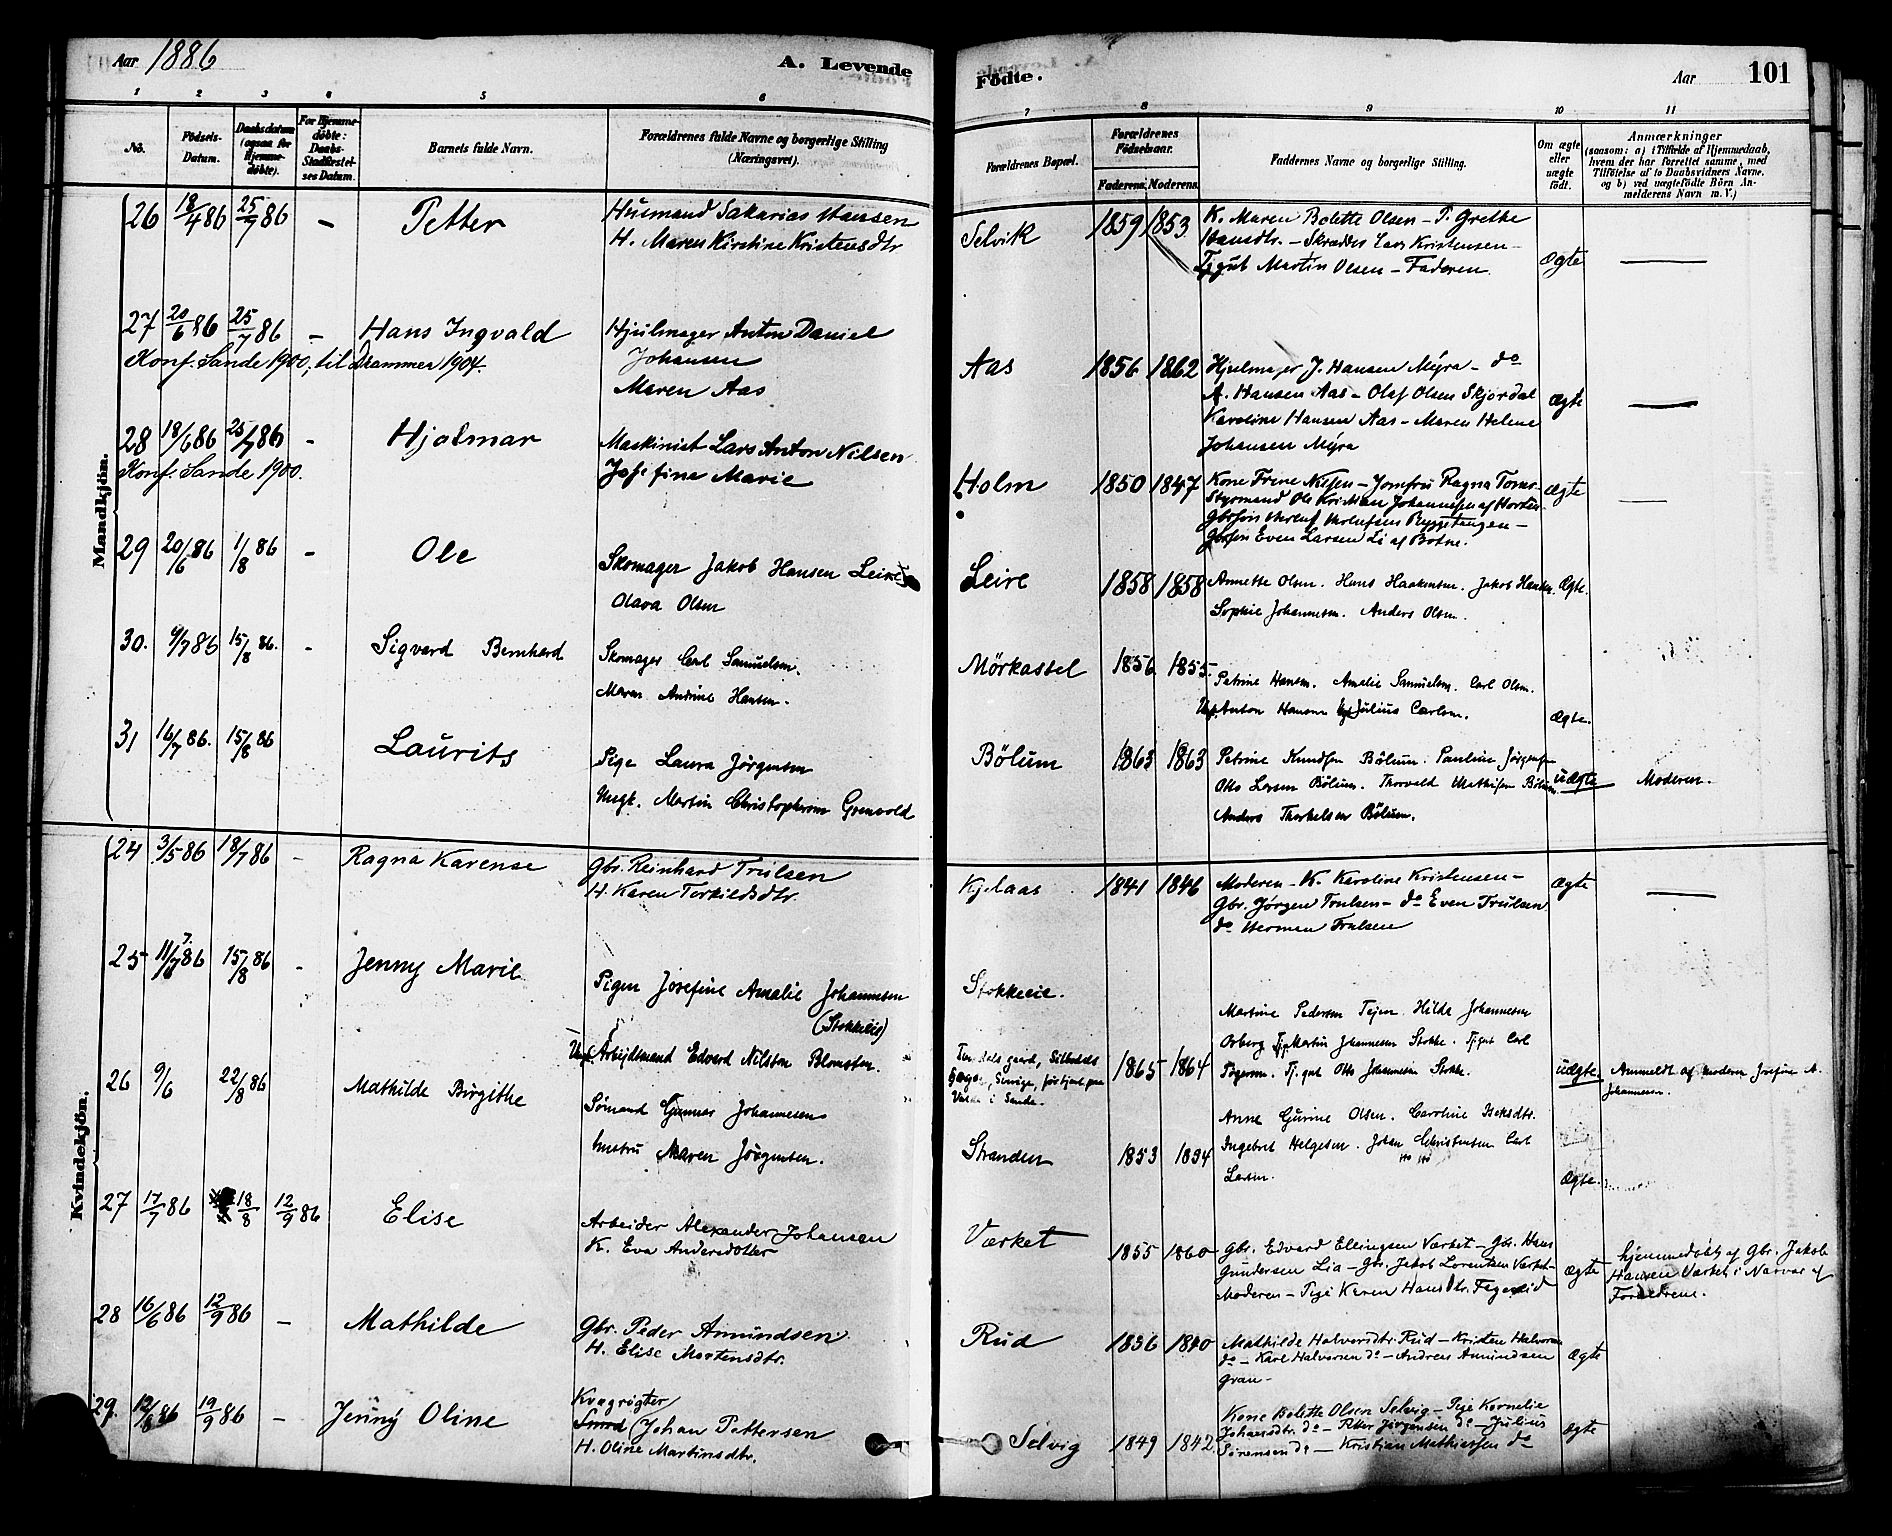 Aar 1886 A. Levende
1 2 3 4 5 6
No.
Fødsels-Datum.
Daabsdatum (ogsaa for Hjemme-døbte).
For Hjemme-døbte: Daabs-Stadfæstel-ses Datum.
Barnets fulde Navn.
Forældrenes fulde Navne og borgerlige Stilling (Næringsvei).
Mandkjøn.
26 18/4 86 25/7 86 – Petter Husmand Sakarias Hansen
H. Maren Kirstine Kristensdtr.
27 20/6 86 25/7 86 – Hans Ingvald Hjulmager Anton Daniel
Johansen
Konf. Sande 1900, til Drammen 1904.
Maren Aas
28 18/6 86 25/7 86 – Hjalmar Maskinist Lars Anton Nilsen
Konf. Sande 1900. Josefine Marie
29 20/6 86 1/8 86 – Ole Skomager Jakob Hansen Leire
Olava Olsen
30. 9/7 86 15/8 86. – Sigvard Bernhard Skomager Carl Samuelsen.
Maren Andrine Hansen.
31 16/7 86. 15/8 86 Laurits Pige Laura Jørgensen
Ungk. Martin Christophersen Grenvold
Kvindekjön.
24 3/5 86 18/7 86 – Ragna Karense Gbr. Reinhard Trulsen
H. Karen Terkildsdtr.
25 11/7 86 15/8 86 – Jenny Marie Pigen Josefine Amalie Johannesen
(Stokkeeie)
Arbejdsmand Edvard Nilsson Blomsten.
26 9/6 22/8 86 Mathilde Birgithe Sømand Gunnar Johannesen
Hustru Maren Jörgensen.
27 17/7 86 18/8 12/9 86 Elise Arbeider Alexander Johansen
K. Eva Andersdotter
28 16/6 86 12/9 86 – Mathilde Gbr. Peder Amundsen
H. Elise Mortensdtr.
29. 12/8 86 19/9 86 – Jenny Oline Kvægrøgter
Smed Johan Pettersen
H. Oline Martinsdtr.
Födte. Aar 101
7 8 9 10 11
Forældrenes Bopæl.
Forældrenes Fødselsaar.
Faderens. Moderens.
Faddernes Navne og borgerlige Stilling.
Om ægte eller uægte født.
Anmærkninger
(saasom: a) i Tilfælde af Hjemmedaab,
hvem der har forrettet samme, med
Tilføielse af to Daabsvidners Navne,
og b) ved uægtefødte Börn An-
melderens Navn m. V.)
Selvik 1859 1853 K. Maren Bolette Olsen – P. Grethe
Hansdtr. – Skrædder Lars Kristensen –
Tjgut Martin Olsen – Faderen. Ægte
Aas 1856 1862 Hjulmager J. Hansen Myra – do
A. Hansen Aas – Olaf Olsen Skjordal
Karoline Hansen Aas – Maren Helene
Johansen Myra Ægte
Holm 1850 1847 Kone Frene Nilsen – Jomfru Ragna
Styrmand Ole Kristian Johannesen af Horten
Ryggetangen –
Even Larsen Li af Botne. Ægte
Leire 1858 1858 Annette Olsen. Hans Haakensen. Jakob Hansen. Ægte.
Sophie Johannesen. Anders Olsen.
Mörkassel 1856 1855. Petrine Hansen. Amalie Samuelsen. Carl Olsen.
Anton Hansen Julius Carlsen. Ægte.
Bölum 1863 1863 Petrine Knudsen Bölum. Pauline Jörgensen
Otto Larsen Bölum. Thorvald Mathisen Bölum. uægte Moderen.
Anders Thorkelsen Bölum.
Kjelaas 1841 1846 Moderen – K. Karoline Kristensen –
Gbr. Jörgen Trulsen – do Even Trulsen
do Herman Trulsen Ægte
Stokkeeie. Martine Pedersen Tejen. Hilda Johannesen
Orberg Martin Johannesen Stokke. Tjgut Carl
1865 1864 Tj.gut Otto Johannesen Stokke. uægte. Anmeldt af Moderen Josefine A.
Johannesen.
Sverige,
i Sande.
Stranden 1853 1854 Anne Gurine Olsen. Caroline
Ingebret Helgesen. Johan Christensen Carl
Larsen. Ægte.
Værket 1855 1860 Gbr. Edvard Ellingsen Værket – Gbr. Hans
Gundersen Lia – Gbr. Jakob Lorentzen Værket
Moderen – Pige Karen Hansdtr. Ægte hjemmedøbt af Gbr. Jakob
Hansen Værket i Nærvær af
Forældrene.
Rud 1836 1840 Mathilde Halvorsdtr. Rud – Kristen Halvorsen
do – Karl Halvorsen do – Andreas Amundsen
Gran – Ægte
Selvig 1849 1842 Kone Bolette Olsen Selvig – Pige Kornelie
Johansdtr. do – Petter Jörgensen do – Julius
Sörensen do – Kristian Mathiesen do Ægte